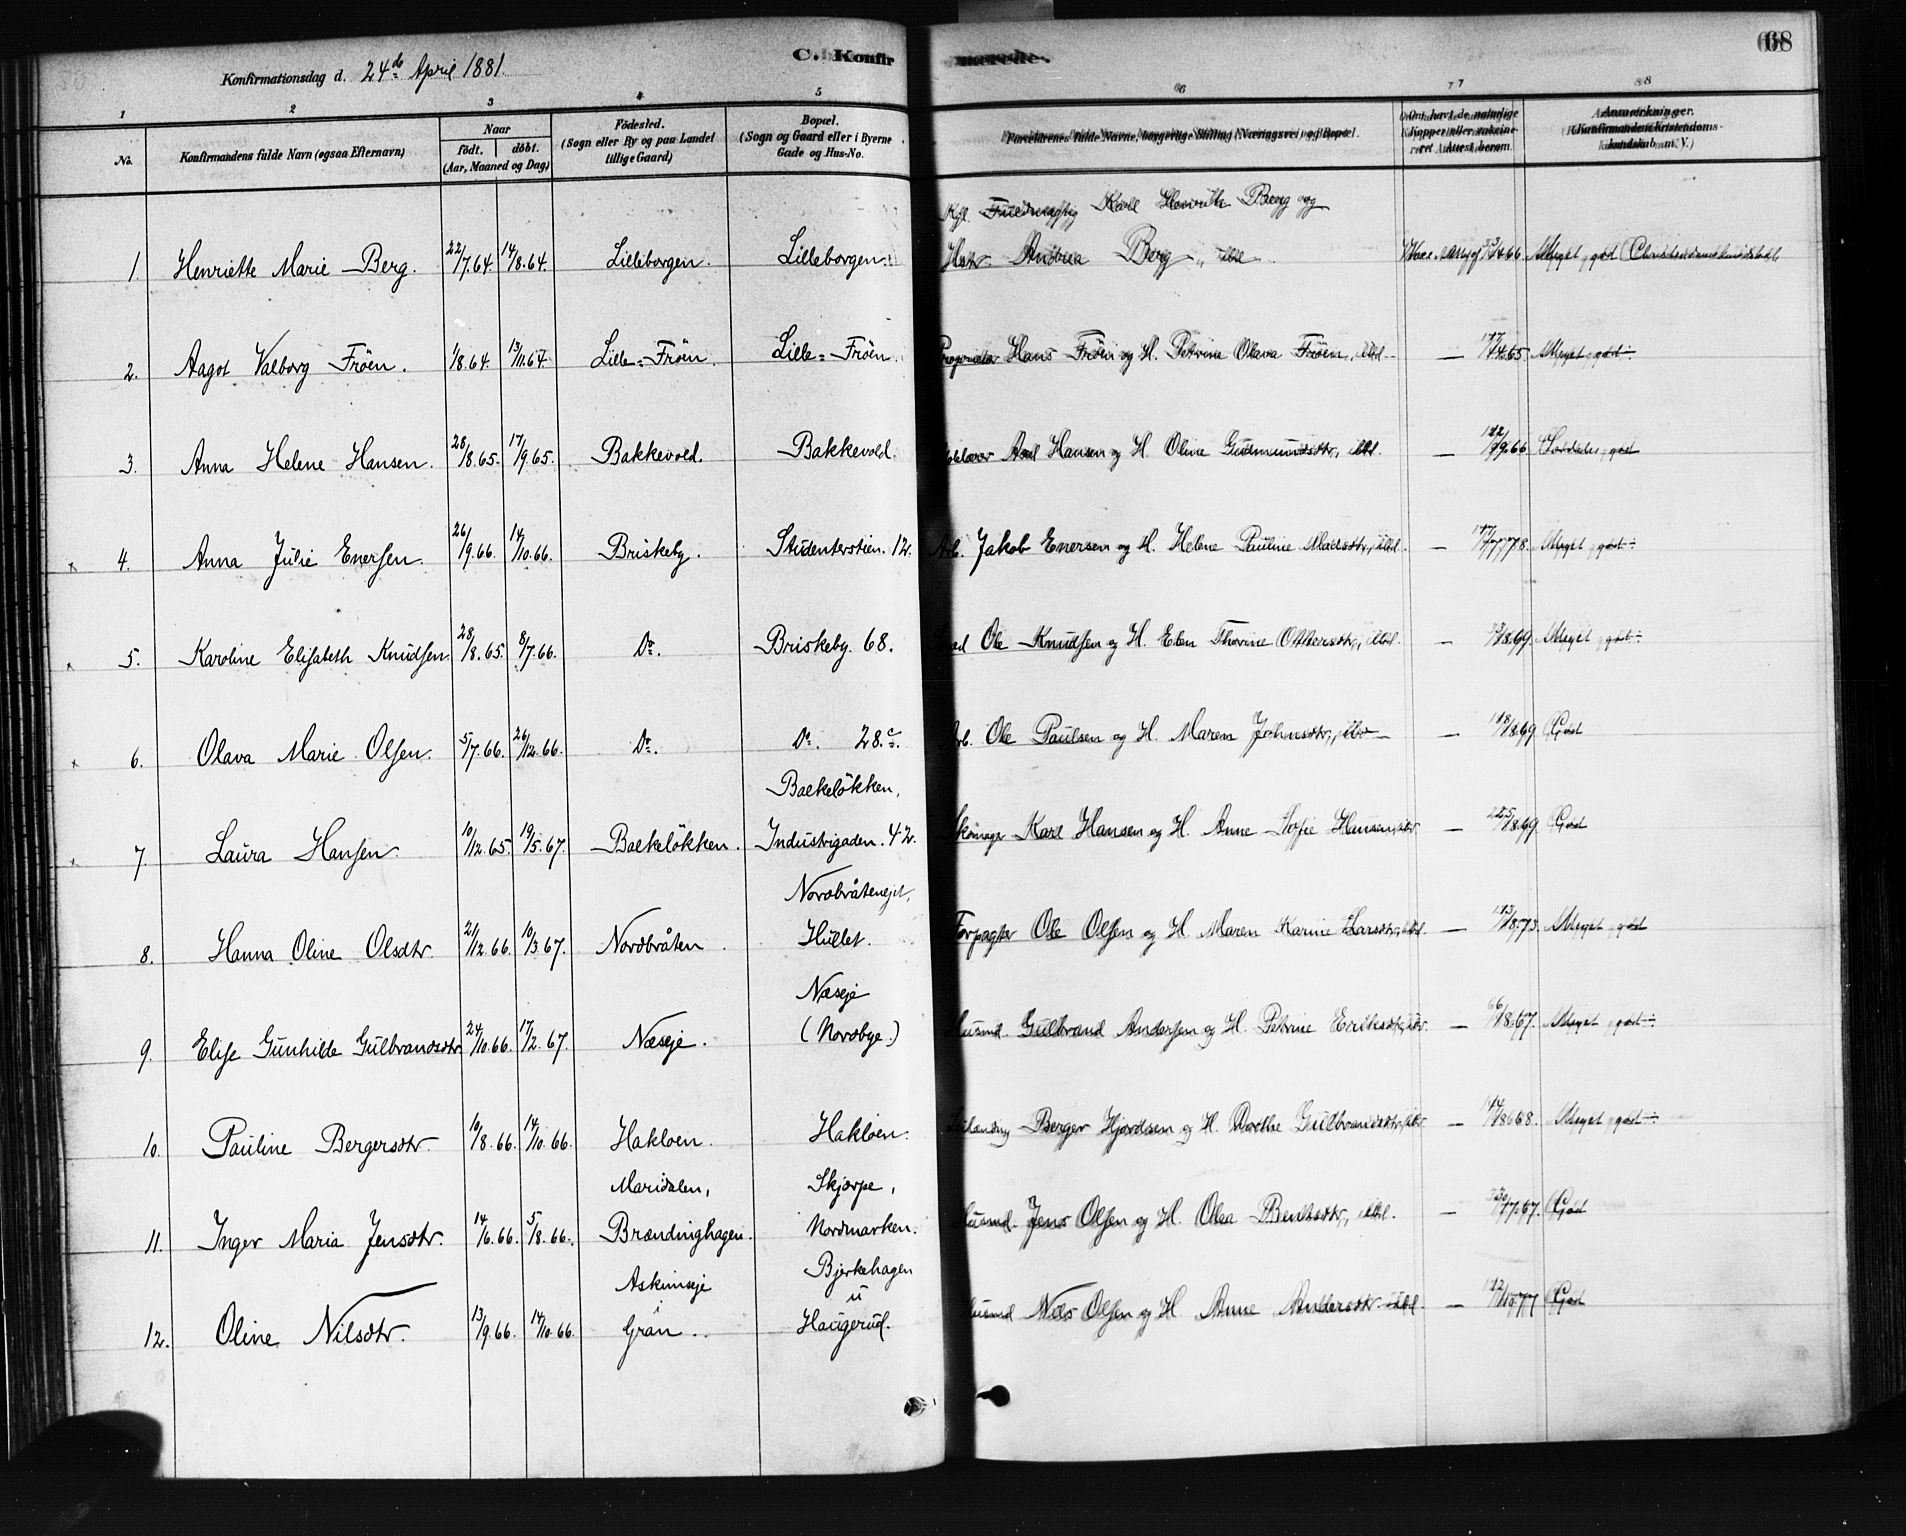 68
Konfirmationsdag d. 24de April 1881.
C. Konfirmerede.
1 2 3 4 5 6 7 8
No.
Konfirmandens fulde Navn (ogsaa Efternavn)
Naar
födt. döbt.
(Aar, Maaned og Dag)
Födested.
(Sogn eller By og paa Landet
tillige Gaard)
Bopæl.
(Sogn og Gaard eller i Byerne
Gade og Hus-No.
Forældrenes fulde Navne, borgerlige Stilling (Næringsvei) og Bopæl.
Om havt de naturlige
Kopper eller vakcine-
ret Attest herom.
Anmærkninger.
(Konfirmandens Kristendoms-
kundskab m. V.)
Karl Henrik Berg og
1. Henriette Marie Berg. 22/7.64. 14/8.64. Lilleborgen. Lilleborgen. Andrea Berg, Meget god Christendomskundskab
2. Aagot Valborg Fröen. 1/8.64. 13/11.64. Lille=Fröen. Lille=Fröen. Proprietær Hans Fröen og H. Petrine Olava Fröen, ibd. — 17/4.65 Meget god
3. Anna Helene Hansen. 28/8.65. 17/9.65. Bakkevold. Bakkevold. Axel Hansen og H. Oline Gudmundsdtr, ibd. — 12/9.66 Særdeles god
× 4. Anna Julie Enersen. 26/9.66. 14/10.66. Briskeby. Studenterstien. 12. Arb. Jakob Enersen og H. Helene Pauline Madsdtr, ibd. — 17/7.78. Meget god ÷
× 5. Karoline Elisabeth Knudsen. 28/8.65. 8/7.66. Do. Briskeby 68. Ole Knudsen og H. Elen Thorine Ottersdtr, ibd. — 3/8.69. Meget god ÷
× 6. Olava Marie Olsen. 5/7.66. 26/12.66. Do. Do. 28.c. Arb. Ole Paulsen og H. Maren Johnsdtr, ibd — 18/8.69 God
Bakkeløkken,
× 7. Laura Hansen. 10/12.65. 19/5.67. Bakkeløkken. Industrigaden. 42. Skomager Karl Hansen og H. Anne Sofie Hansen, ibd — 25/8.69. God
Nordbråteneje,
8. Hanna Oline Olsdtr. 21/12.66. 10/3.67. Nordbråten. Hullet. Forpagter Ole Olsen og H. Maren Karine Larsdtr, ibd. — 13/8.73. Meget god
Næseje
9. Elise Gunhilde Gulbrandsdtr. 24/10.66. 17/2.67. Næseje. (Nordbye.) Husmd. Gulbrand Andersen og H. Petrine Eriksdtr, ibd. — 6/8.67. Meget god ÷
10. Pauline Bergersdtr. 10/8.66. 14/10.66. Hakloen. Hakloen. Berger Hjordsen og H. Dorthe Gulbrandsdtr, ibd. — 14/8.68. Meget god ÷
Maridalen, Skjerpe,
11. Inger Maria Jensdtr. 14/6.66. 5/8.66. Brændinghagen. Nordmarken. Husmd. Jens Olsen og H. Olea Bentsdtr, ibd. — 30/7.67. God
Askimseje Bjerkehagen
i u
12. Oline Nilsdtr. 13/9.66. 14/10.66. Gran. Haugerud. Husmd. Nils Olsen og H. Anne Andersdtr ibd — 12/10.77 God